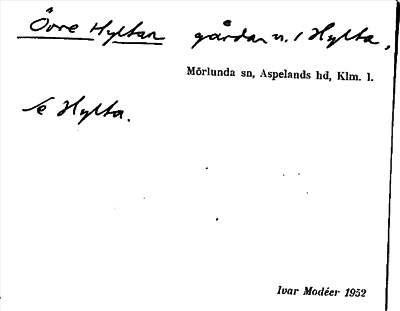 Övre Hyltan gårdan n. i Hylta,
Mörlunda sn, Aspelands hd, Klm. l.
se Hylta.
Ivar Modéer 1952